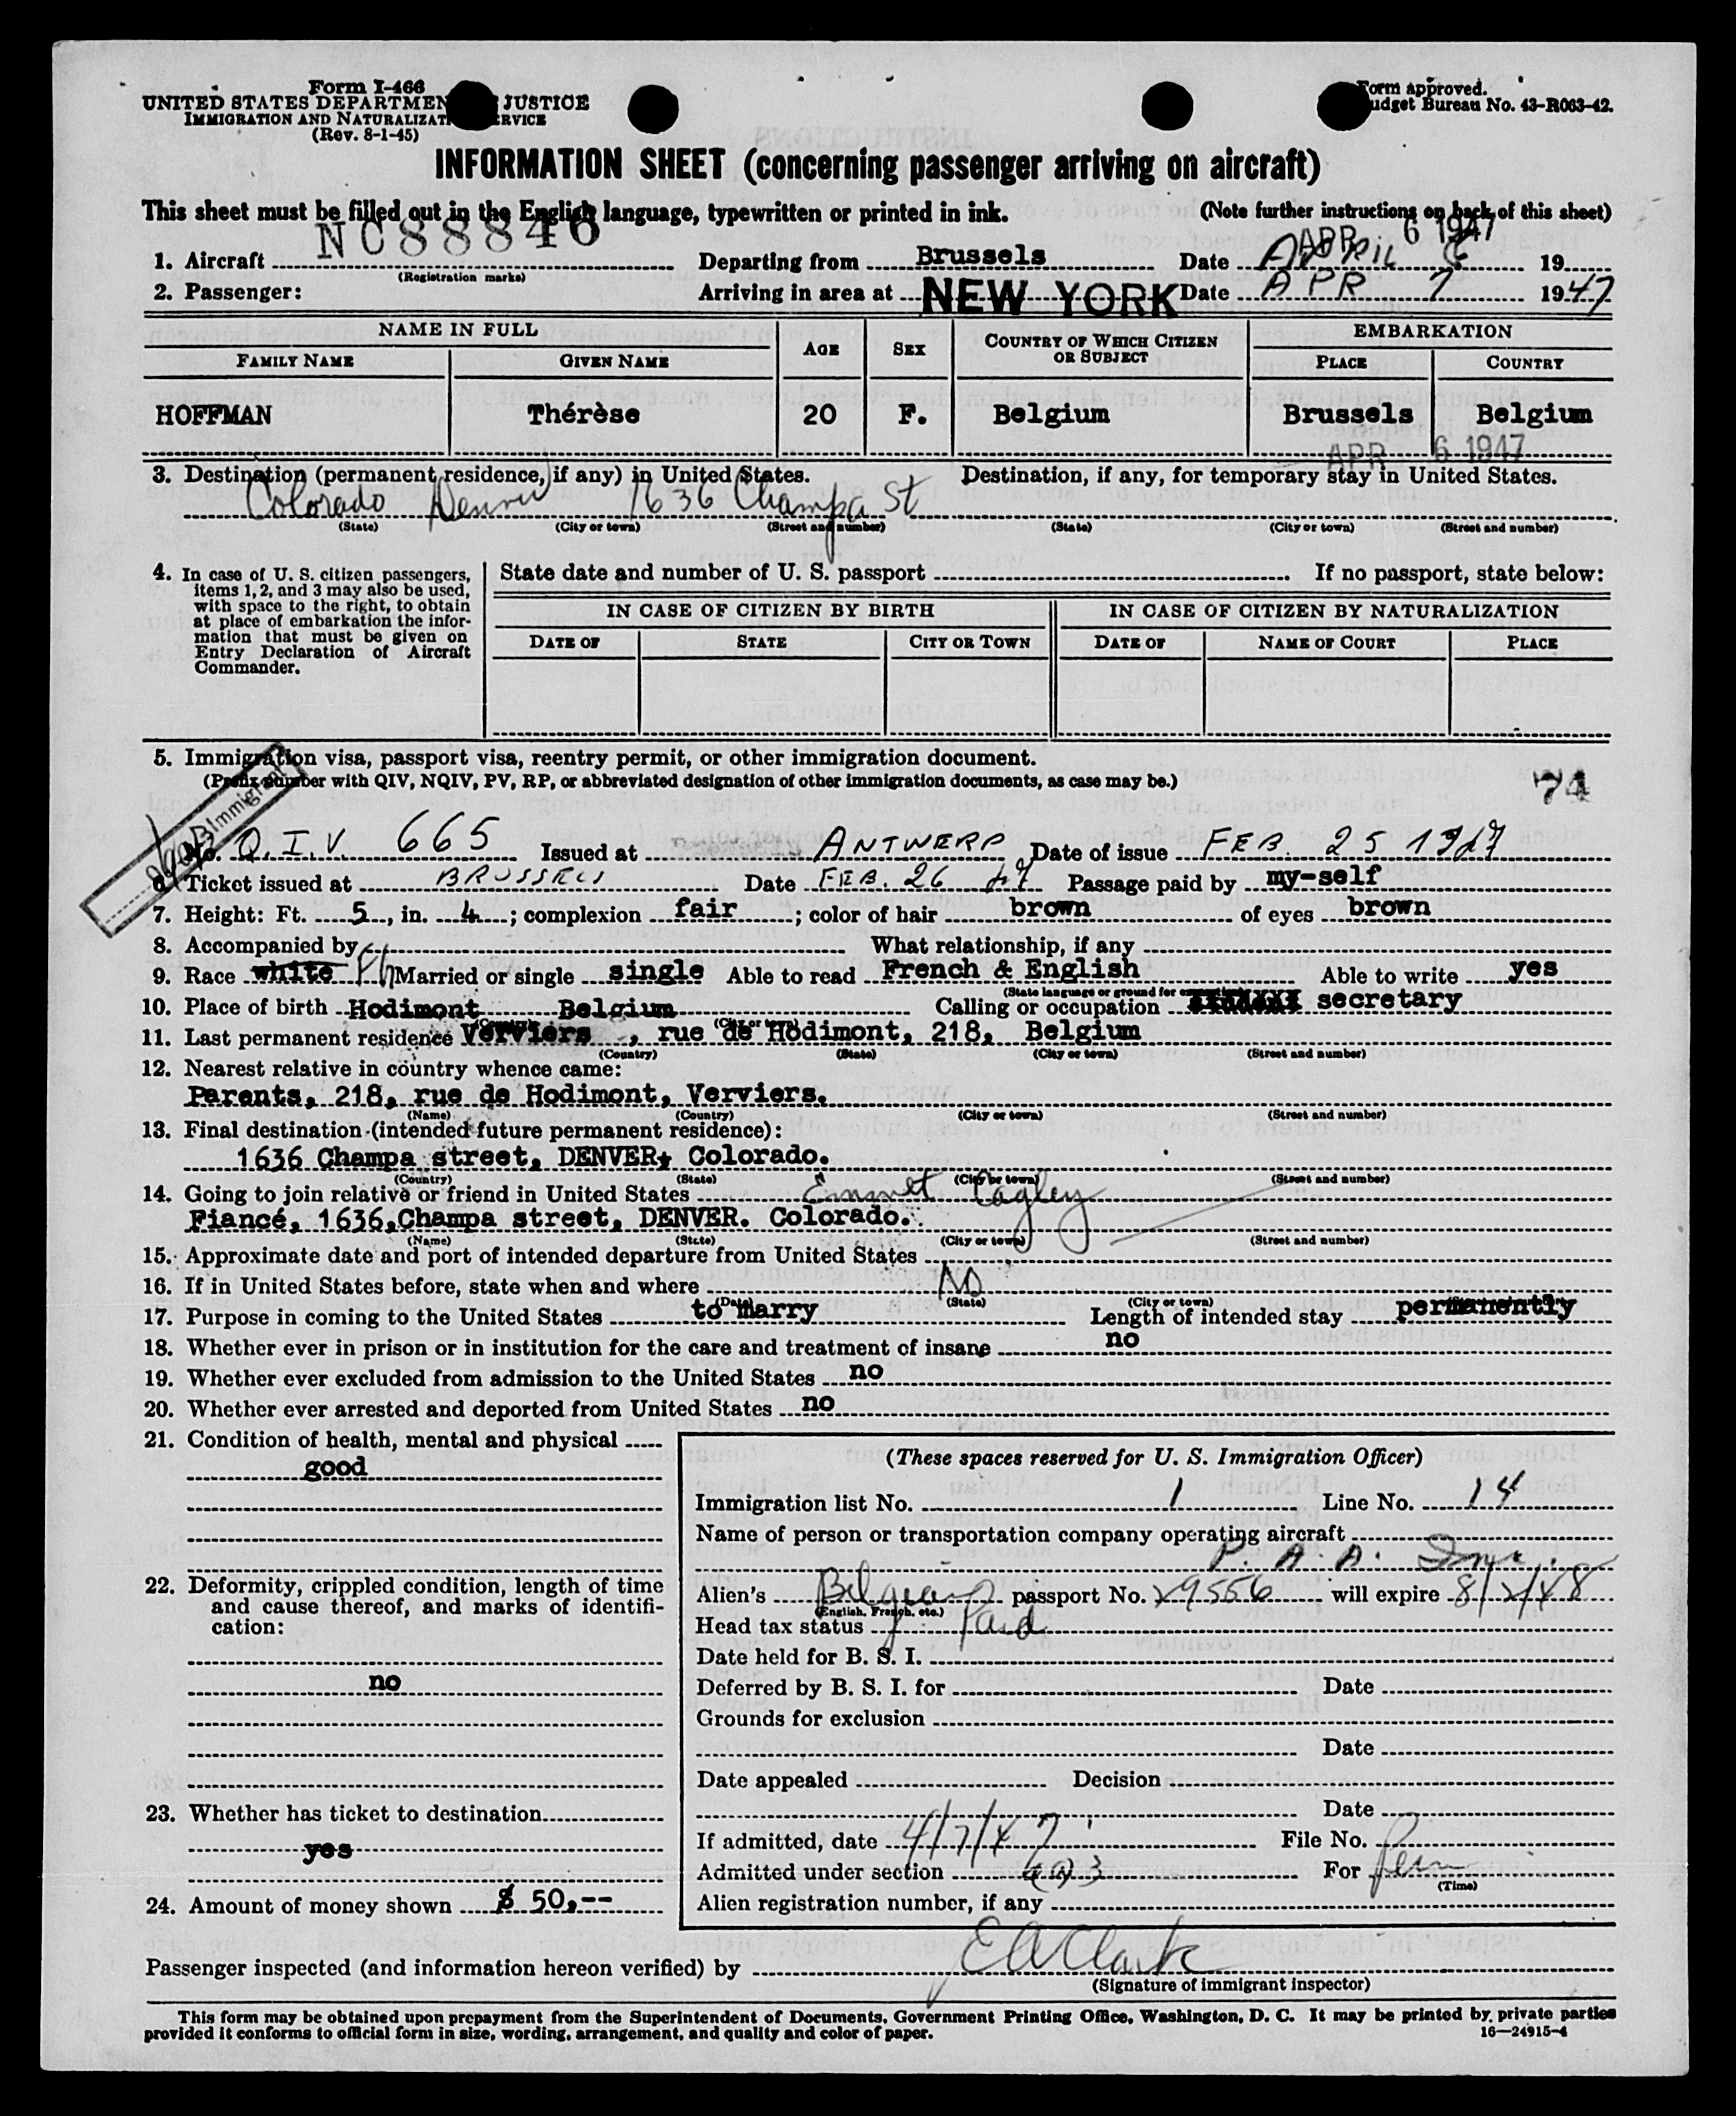 Form I-466
UNITED STATES DEPARTMEN JUSTICE
IMMIGRATION AND NATURALIZAT RVICE
(Rev. 8-1-45)
orm approved.
udget Bureau No. 43-R063-42.
INFORMATION SHEET (concerning passenger arriving on aircraft)
This sheet must be filled out in the English language, typewritten or printed in ink. (Note further instructions on back of this sheet)
NC88846 APR 6 1947
1. Aircraft Departing from Brussels Date APRIL 6 19
(Registration marks)
2. Passenger: Arriving in area at NEW YORK Date APR 7 1947
NAME IN FULL AGE SEX COUNTRY OF WHICH CITIZEN OR SUBJECT EMBARKATION
FAMILY NAME GIVEN NAME PLACE COUNTRY
HOFFMAN Thérèse 20 F. Belgium Brussels Belgium
APR 6 1947
3. Destination (permanent residence, if any) in United States. Destination, if any, for temporary stay in United States.
Colorado Denver 1636 Champa St
(State) (City or town) (Street and number) (State) (City or town) (Street and number)
4. In case of U. S. citizen passengers, items 1, 2, and 3 may also be used, with space to the right, to obtain at place of embarkation the information that must be given on Entry Declaration of Aircraft Commander.
State date and number of U. S. passport If no passport, state below:
IN CASE OF CITIZEN BY BIRTH IN CASE OF CITIZEN BY NATURALIZATION
DATE OF STATE CITY OR TOWN DATE OF NAME OF COURT PLACE
5. Immigration visa, passport visa, reentry permit, or other immigration document.
(Prefix number with QIV, NQIV, PV, RP, or abbreviated designation of other immigration documents, as case may be.)
74
Immigrant
No. Q.I.V. 665 Issued at ANTWERP Date of issue FEB. 25 1947
6. Ticket issued at BRUSSELS Date FEB. 26 47 Passage paid by my-self
7. Height: Ft. 5, in. 4; complexion fair; color of hair brown of eyes brown
8. Accompanied by What relationship, if any
9. Race white Married or single single Able to read French & English Able to write yes
(State language or ground for exemption)
10. Place of birth Hodimont Belgium Calling or occupation secretary
(Country) (City or town)
11. Last permanent residence Verviers, rue de Hodimont, 218, Belgium
(Country) (State) (City or town) (Street and number)
12. Nearest relative in country whence came:
Parents, 218, rue de Hodimont, Verviers.
(Name) (Country) (City or town) (Street and number)
13. Final destination (intended future permanent residence):
1636 Champa street, DENVER, Colorado.
(Country) (State) (City or town) (Street and number)
14. Going to join relative or friend in United States Emmet Cagley
Fiancé, 1636,Champa street, DENVER. Colorado.
(Name) (State) (City or town) (Street and number)
15. Approximate date and port of intended departure from United States
16. If in United States before, state when and where NO
(Date) (State) (City or town)
17. Purpose in coming to the United States to marry Length of intended stay permanently
18. Whether ever in prison or in institution for the care and treatment of insane no
19. Whether ever excluded from admission to the United States no
20. Whether ever arrested and deported from United States no
21. Condition of health, mental and physical
good
22. Deformity, crippled condition, length of time and cause thereof, and marks of identification:
no
23. Whether has ticket to destination
yes
24. Amount of money shown $ 50,--
(These spaces reserved for U. S. Immigration Officer)
Immigration list No. 1 Line No. 14
Name of person or transportation company operating aircraft
P. A. A. Inc.
Alien's Belgian passport No. 29556 will expire 8/2/48
(English, French, etc.)
Head tax status Paid
Date held for B. S. I.
Deferred by B. S. I. for Date
Grounds for exclusion
Date
Date appealed Decision
Date
If admitted, date 4/7/47 File No.
Admitted under section For Perm
(Time)
Alien registration number, if any
Passenger inspected (and information hereon verified) by EA Clark
(Signature of immigrant inspector)
This form may be obtained upon prepayment from the Superintendent of Documents, Government Printing Office, Washington, D. C. It may be printed by private parties
provided it conforms to official form in size, wording, arrangement, and quality and color of paper. 16—24915-4